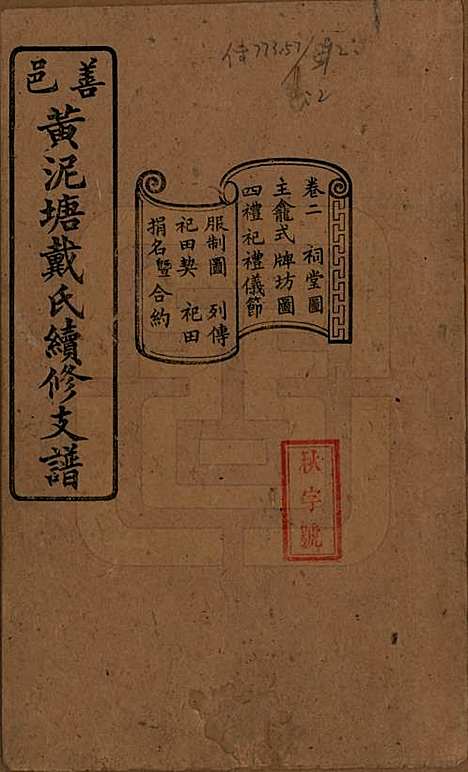 善邑
黃泥塘戴氏續修支譜
卷二　祠堂圖
主龕式牌坊圖
四禮祀禮儀節
服制圖　列傳
祀田契　祀田
捐名暨合約
秋字號
773.57